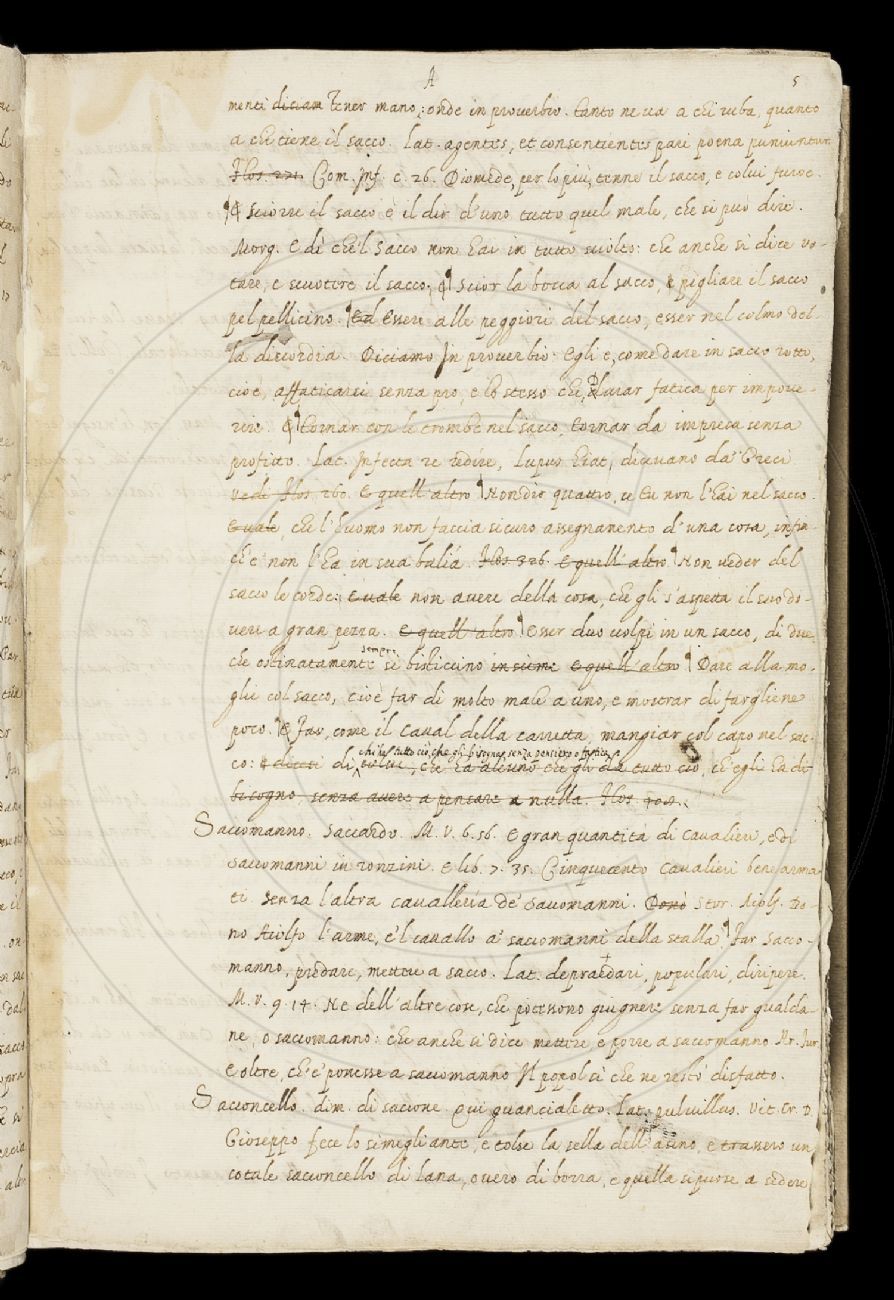 A 5
menti diciam Tener mano; onde in proverbio. Tanto ne va a chi ruba, quanto
a chi tiene il sacco. Lat. agentes, et consentientes pari poena puniuntur
Flos. 221. Com. Inf. c. 26. Diomede, per lo più, tenne il sacco, e colui furoe.
¶ E sciorre il sacco è il dir d'uno tutto quel male, che si può dire.
Morg. E dì che 'l sacco non hai in tutto sciolto: che anche si dice vo-
tare, e scuotere il sacco; e ¶ Scior la bocca al sacco, e pigliare il sacco
pel pellicino. ¶ Ed Essere alle peggiori del sacco, esser nel colmo del-
la discordia. Diciamo In proverbio: Egli è, come dare in sacco rotto,
cioè, affaticarsi senza pro, e lo stesso che, durar fatica per impove-
rire. E ¶ Tornar con le trombe nel sacco, Tornar da impresa senza
profitto. Lat. Infecta re redire, Lupus hiat, dicevano da' Greci
vedi Flos 260. E quell'altro ¶ Non dir quattro, se tu non l'hai nel sacco.
E vale, che l'huomo non faccia sicuro assegnamento d'una cosa, infin-
ch'e' non l'ha in sua balìa. Flos 326. E quell'altro ¶ Non veder del
sacco le corde: E vale non avere della cosa, che gli s'aspetta il suo do-
vere a gran pezza. E quell'altro ¶ Esser duo volpi in un sacco, di due,
sempre
che ostinatamente si bisticcino insieme E quell'altro ¶ Dare alla mo-
glie col sacco, cioè far di molto male a uno, e mostrar di fargliene
poco. ¶ E Far, come il caval della carretta, mangiar col capo nel sac-
chi ha tutto ciò, che gli bisogna, senza pensiero o fatica.
co: e dicesi di colui, che ha alcuno che gli dà tutto ciò, ch'egli ha di
bisogno, senza avere a pensare a nulla. Flos 308.
Saccomanno. Saccardo. M. V. 6. 56. E gran quantità di cavalieri, e di
saccomanni in ronzini. E lib. 7. 35. Cinquecento cavalieri bene arma-
ti senza l'altra cavalleria de' saccomanni. Donò Stor. Aiolf. Do-
nò Aiolfo l'arme, e 'l cavallo a' saccomanni della stalla. ¶ Far sacco-
manno, predare, mettere a sacco. Lat. depraedari, populari, diripere.
M. V. 9. 14. Ne dell'altre cose, che potessono giugnere senza far gualda-
ne, o saccomanno: che anche si dice mettere e porre a saccomanno Ar. Fur.
E oltre, ch'e' ponesse a saccomanno Il popol sì che ne restò disfatto.
Sacconcello. dim. di saccone. Qui guancialetto. Lat. pulvillus. Vit. Cr. D.
Gioseppo fece lo simegliante, e tolse la sella dell'asino, e trassero un
cotale sacconcello di lana, overo di borra, e quella si puose a sedere